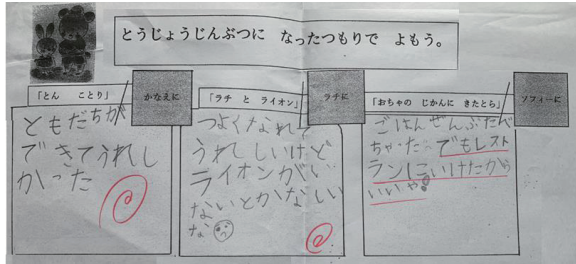 とうじょうじんぶつに なったつもりで よもう。
「とん ことり」
かなえに
ともだちが
できてうれし
かった
「ラチ と ライオン」
ラチに
つよくなれて
うれしいけど
ライオンがい
ないとかなしい
な
「おちゃの じかんに きたとら」
ソフィーに
ごはんぜんぶたべ
ちゃった。でもレスト
ランにいけたから
いいや。